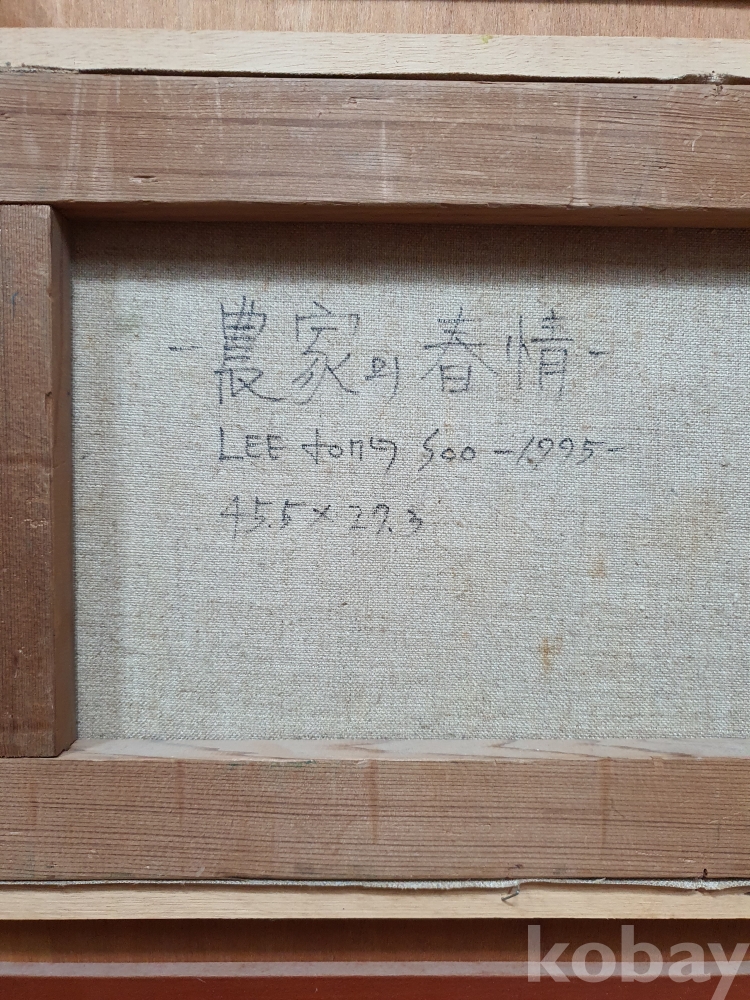 -農家의 春情-
LEE Jong Soo -1995-
45.5×27.3
kobay